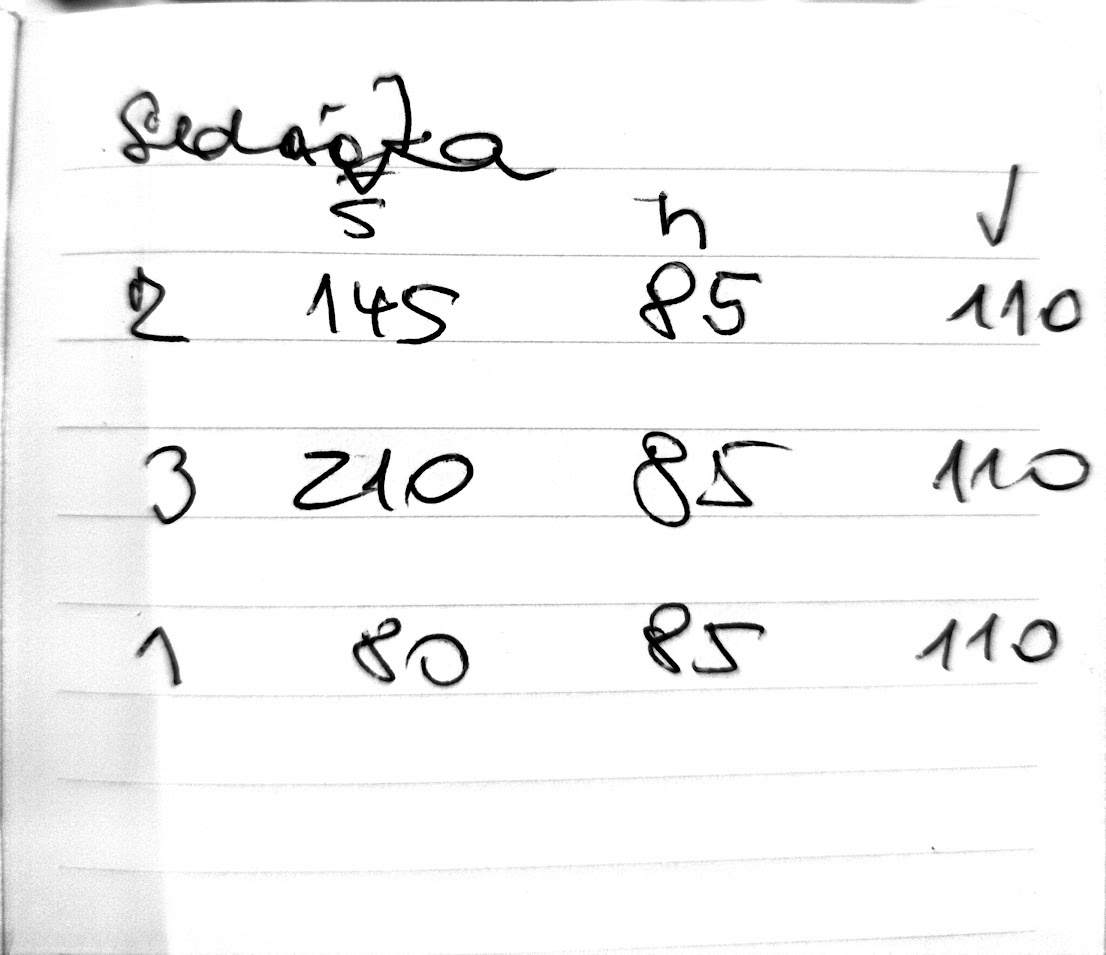 Sedačka
š h v
2 145 85 110
3 210 85 110
1 80 85 110